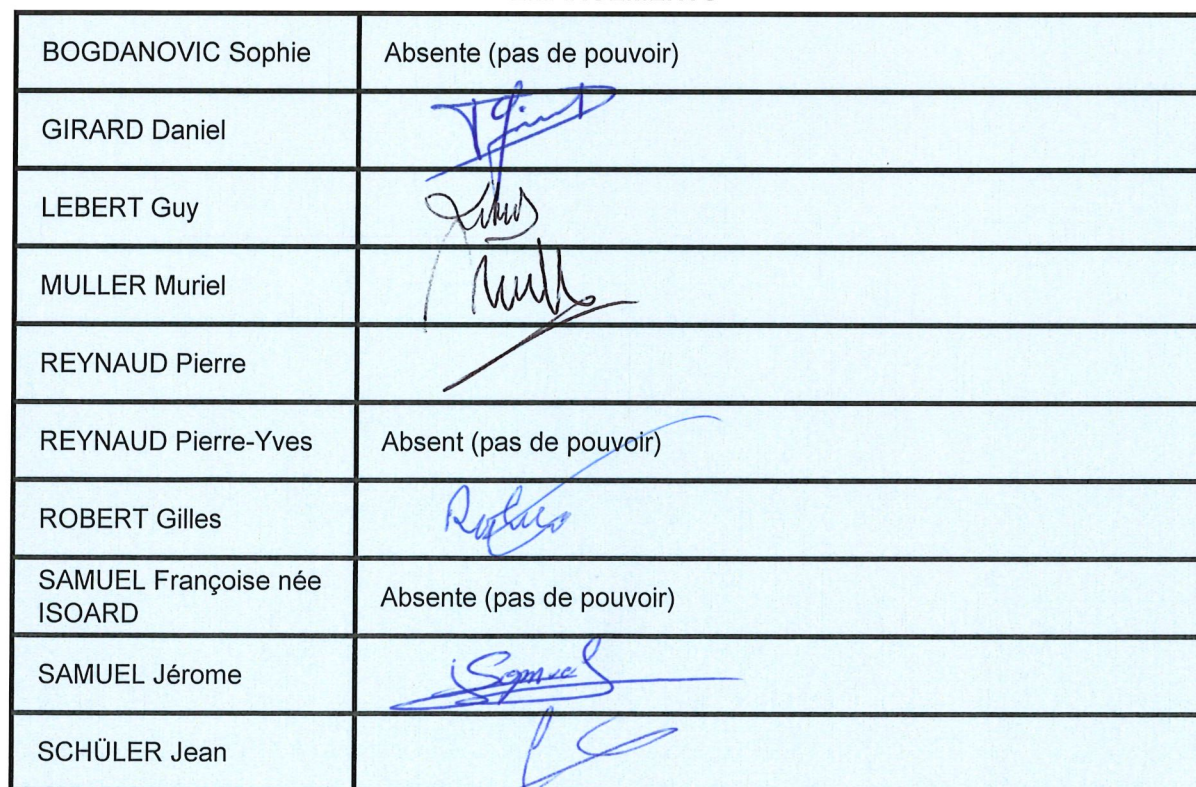 BOGDANOVIC Sophie Absente (pas de pouvoir)
GIRARD Daniel
LEBERT Guy
MULLER Muriel
REYNAUD Pierre
REYNAUD Pierre-Yves Absent (pas de pouvoir)
ROBERT Gilles
SAMUEL Françoise née
ISOARD
Absente (pas de pouvoir)
SAMUEL Jérome Samuel
SCHÜLER Jean